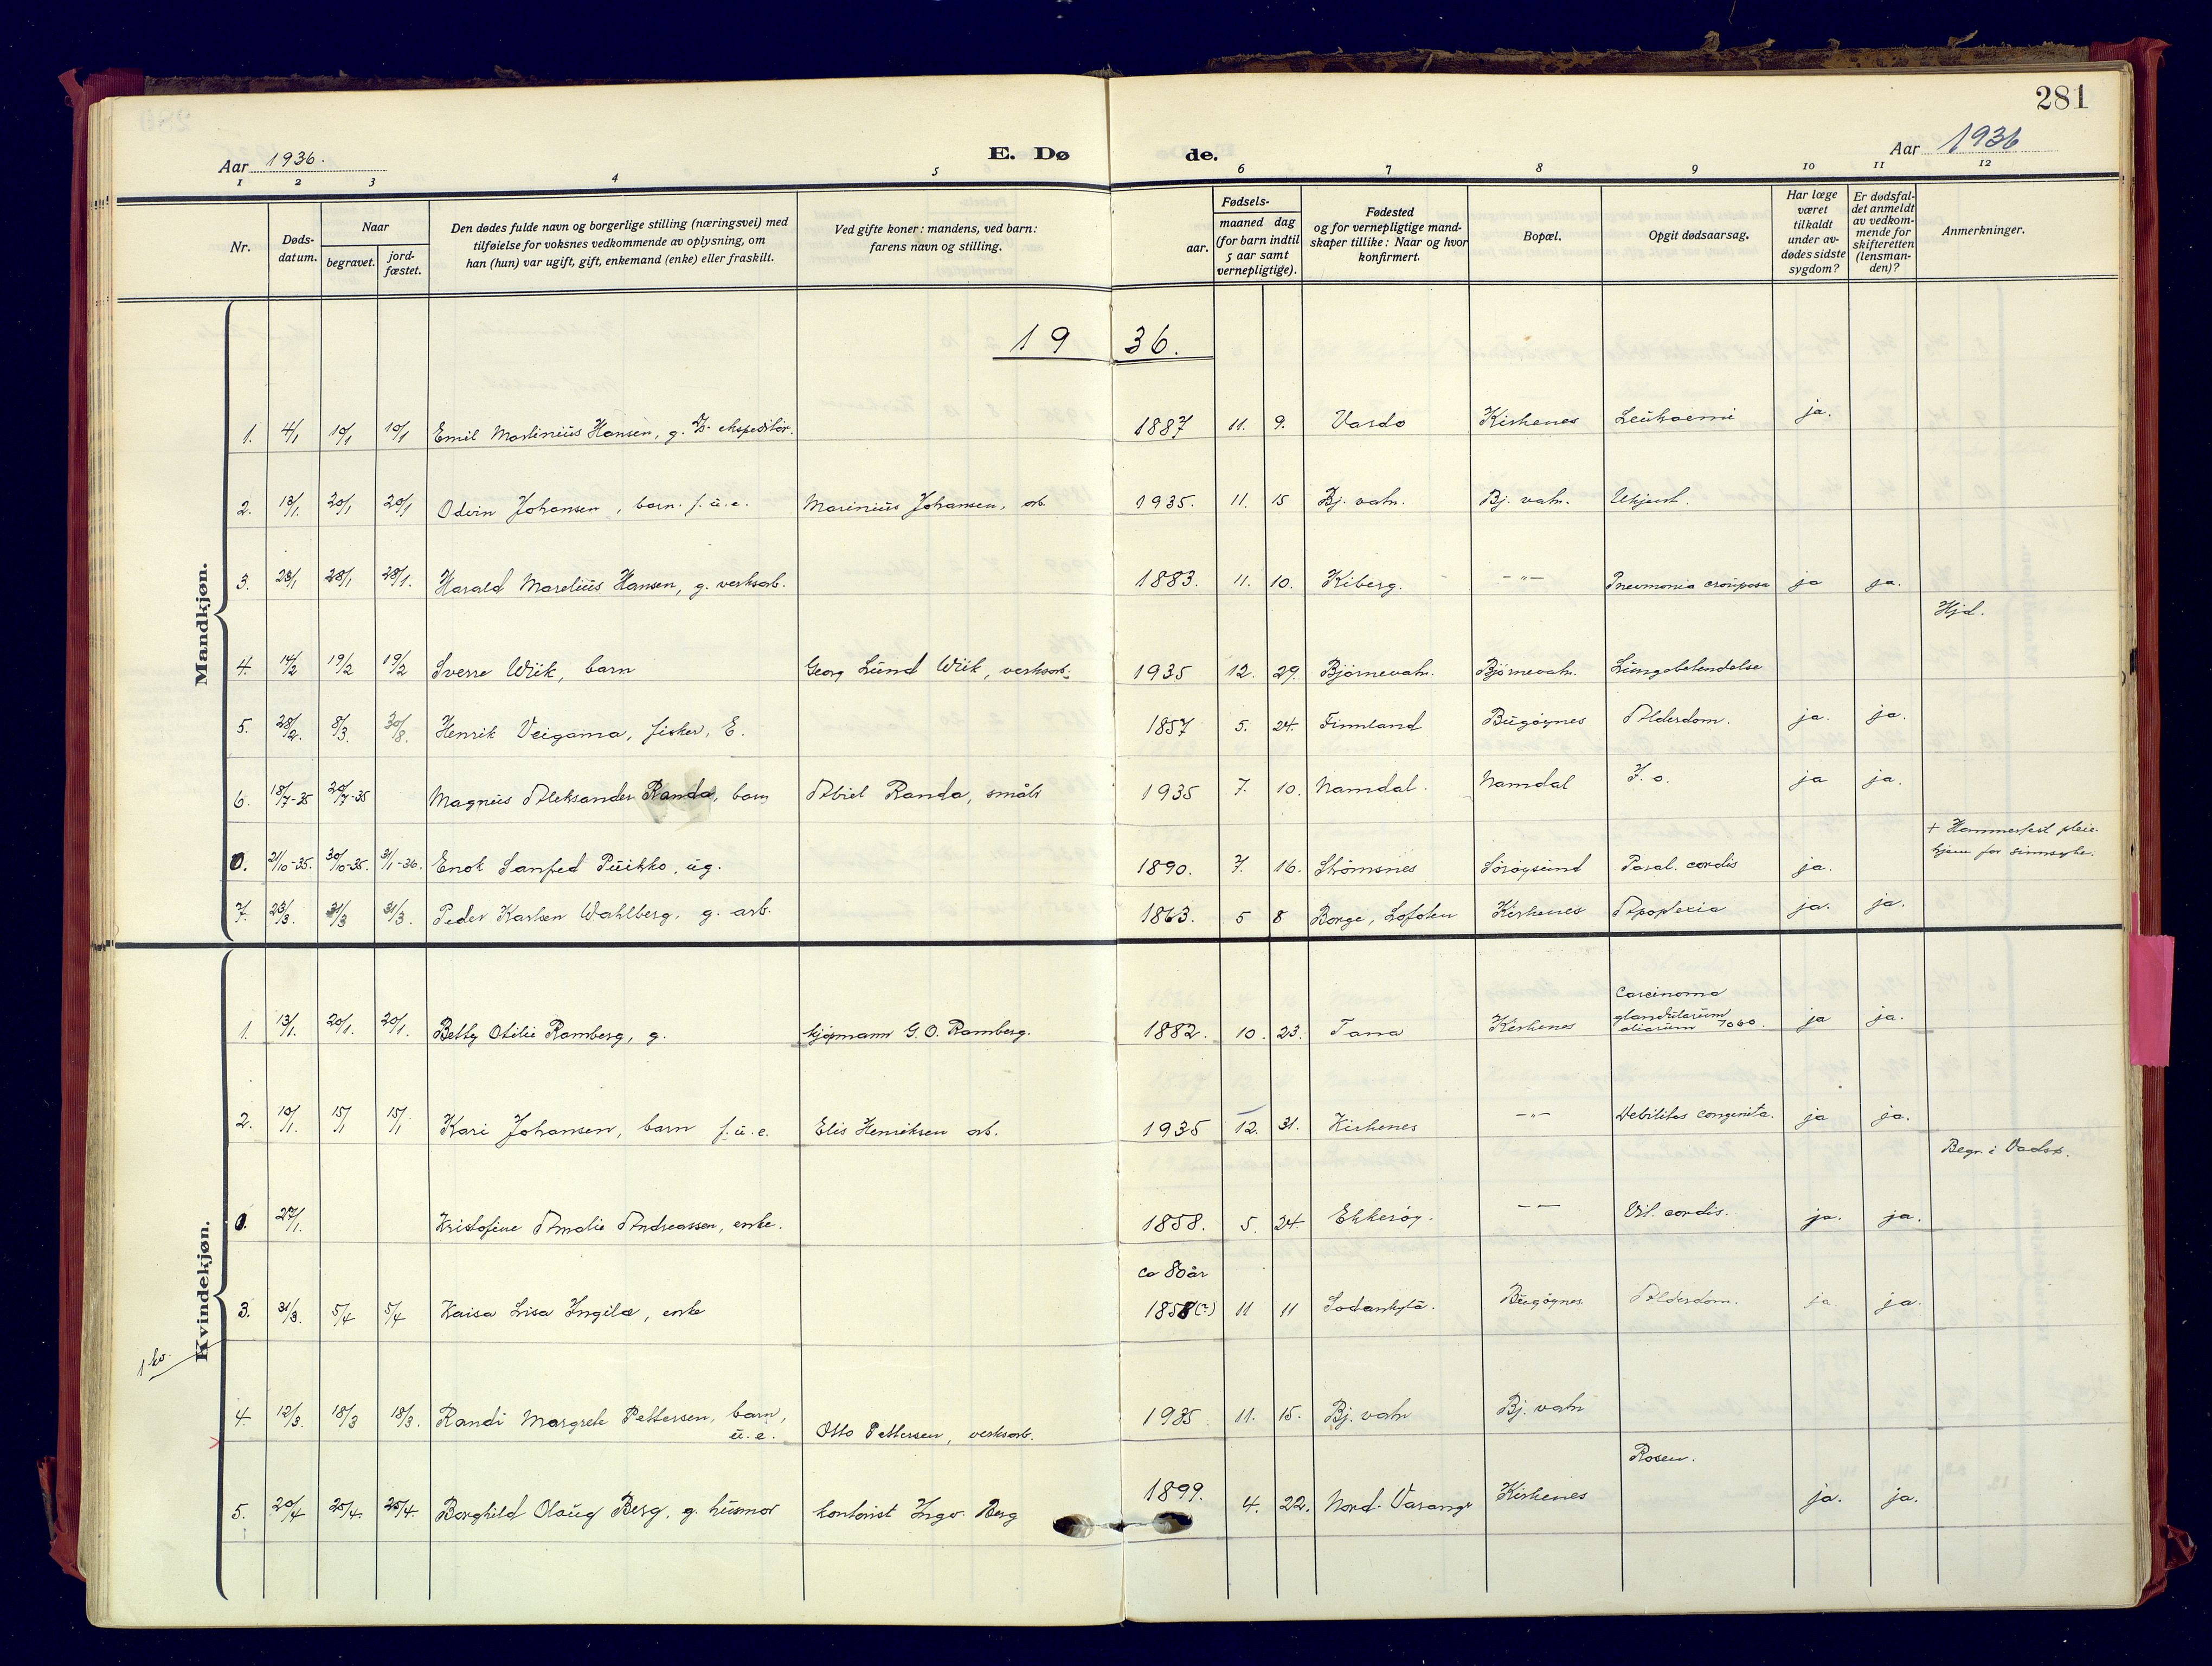 281
Aar 1936.
E. Dø de.
Aar 1936
1 2 3 4 5 6 7 8 9 10 11 12
Nr.
Døds-
datum.
Naar
begravet.
jord-
fæstet.
Den dødes fulde navn og borgerlige stilling (næringsvei) med
tilføielse for voksnes vedkommende av oplysning, om
han (hun) var ugift, gift, enkemand (enke) eller fraskilt.
Ved gifte koner: mandens, ved barn:
farens navn og stilling.
Fødsels-
aar.
maaned dag
(for barn indtil
5 aar samt
vernepligtige).
Fødested
og for vernepligtige mand-
skaper tillike: Naar og hvor
konfirmert.
Bopæl.
Opgit dødsaarsag.
Har læge
været
tilkaldt
under av-
dødes sidste
sygdom?
Er dødsfal-
det anmeldt
av vedkom-
mende for
skifteretten
(lensman-
den)?
Anmerkninger.
19 36.
Mandkjøn.
1. 4/1 10/1 10/1 Emil Martinius Hansen, g. ekspeditør. 1887 11. 9. Vardø Kirkenes Leukaemi ja.
2. 13/1. 20/1 20/1 Odvin Johansen, barn. f. u. e. Marinius Johansen, arb. 1935. 11. 15 Bj. vatn. Bj. vatn. Ukjent.
3. 23/1 28/1 28/1. Harald Marelius Hansen, g. verksarb. 1883. 11. 10. Kiberg. -"- Pneumonia crouposa ja ja.
Hjd.
4. 14/2 19/2 19/2 Sverre Wiik, barn Georg Lund Wiik, verksarb. 1935 12. 29. Bjørnevatn. Bjørnevatn. Lungebetendelse
5. 28/2. 8/3. 30/8. Henrik Veigama, fisker, E. 1857 5. 24. Finnland Bugøynes Alderdom. ja. ja.
6. 18/7-35 20/7-35 Magnus Aleksander Randa, barn Abiel Randa, småbr 1935 7. 10. Namdal. Namdal F. o. ja ja.
+ Hammerfest pleie-
hjem for sinnsyke.
0. 21/10-35. 30/10-35. 31/1-36. Enok Sanfred Puikko, ug. 1890. 7. 16. Strömsnes Sörøysund Paral. cordis ja.
7. 23/3. 31/3 31/3. Peder Karlsen Wahlberg, g. arb. 1863. 5 8 Borge, Lofoten Kirkenes Apoplexia ja. ja.
Kvindekjøn.
Carcinoma
glandularum
1. 13/1. 20/1. 20/1. Betty Otilie Ramberg, g. kjøpmann G. O. Ramberg. 1882. 10. 23. Tana Kirkenes ja ja.
2. 10/1. 15/1 15/1 Kari Johansen, barn f. u. e. Elis Henriksen arb. 1935 12. 31. Kirkenes -"- Debilitas congenita. ja ja.
Begr. i Vadsø.
0. 27/1. Kristofine Amalie Andreassen, enke. 1858. 5. 24. Ekkerøy. -"- Vit. cordis. ja. ja.
ca 80 år
3. 31/3. 5/4 5/4 Kaisa Lisa Ingila, enke 1858(?) 11 11 Sodankylä. Bugøynes. Alderdom. ja ja.
1 kv.
4. 12/3. 18/3 18/3. Randi Margrete Pettersen, barn,
u. e. Otto Pettersen, verksarb. 1935 11. 15. Bj. vatn Bj. vatn
Rosen.
5. 20/4 25/4. 25/4. Borghild Olaug Berg, g. husmor kontorist Ingv. Berg 1899. 4. 22. Nord-Varanger Kirkenes ja. ja.